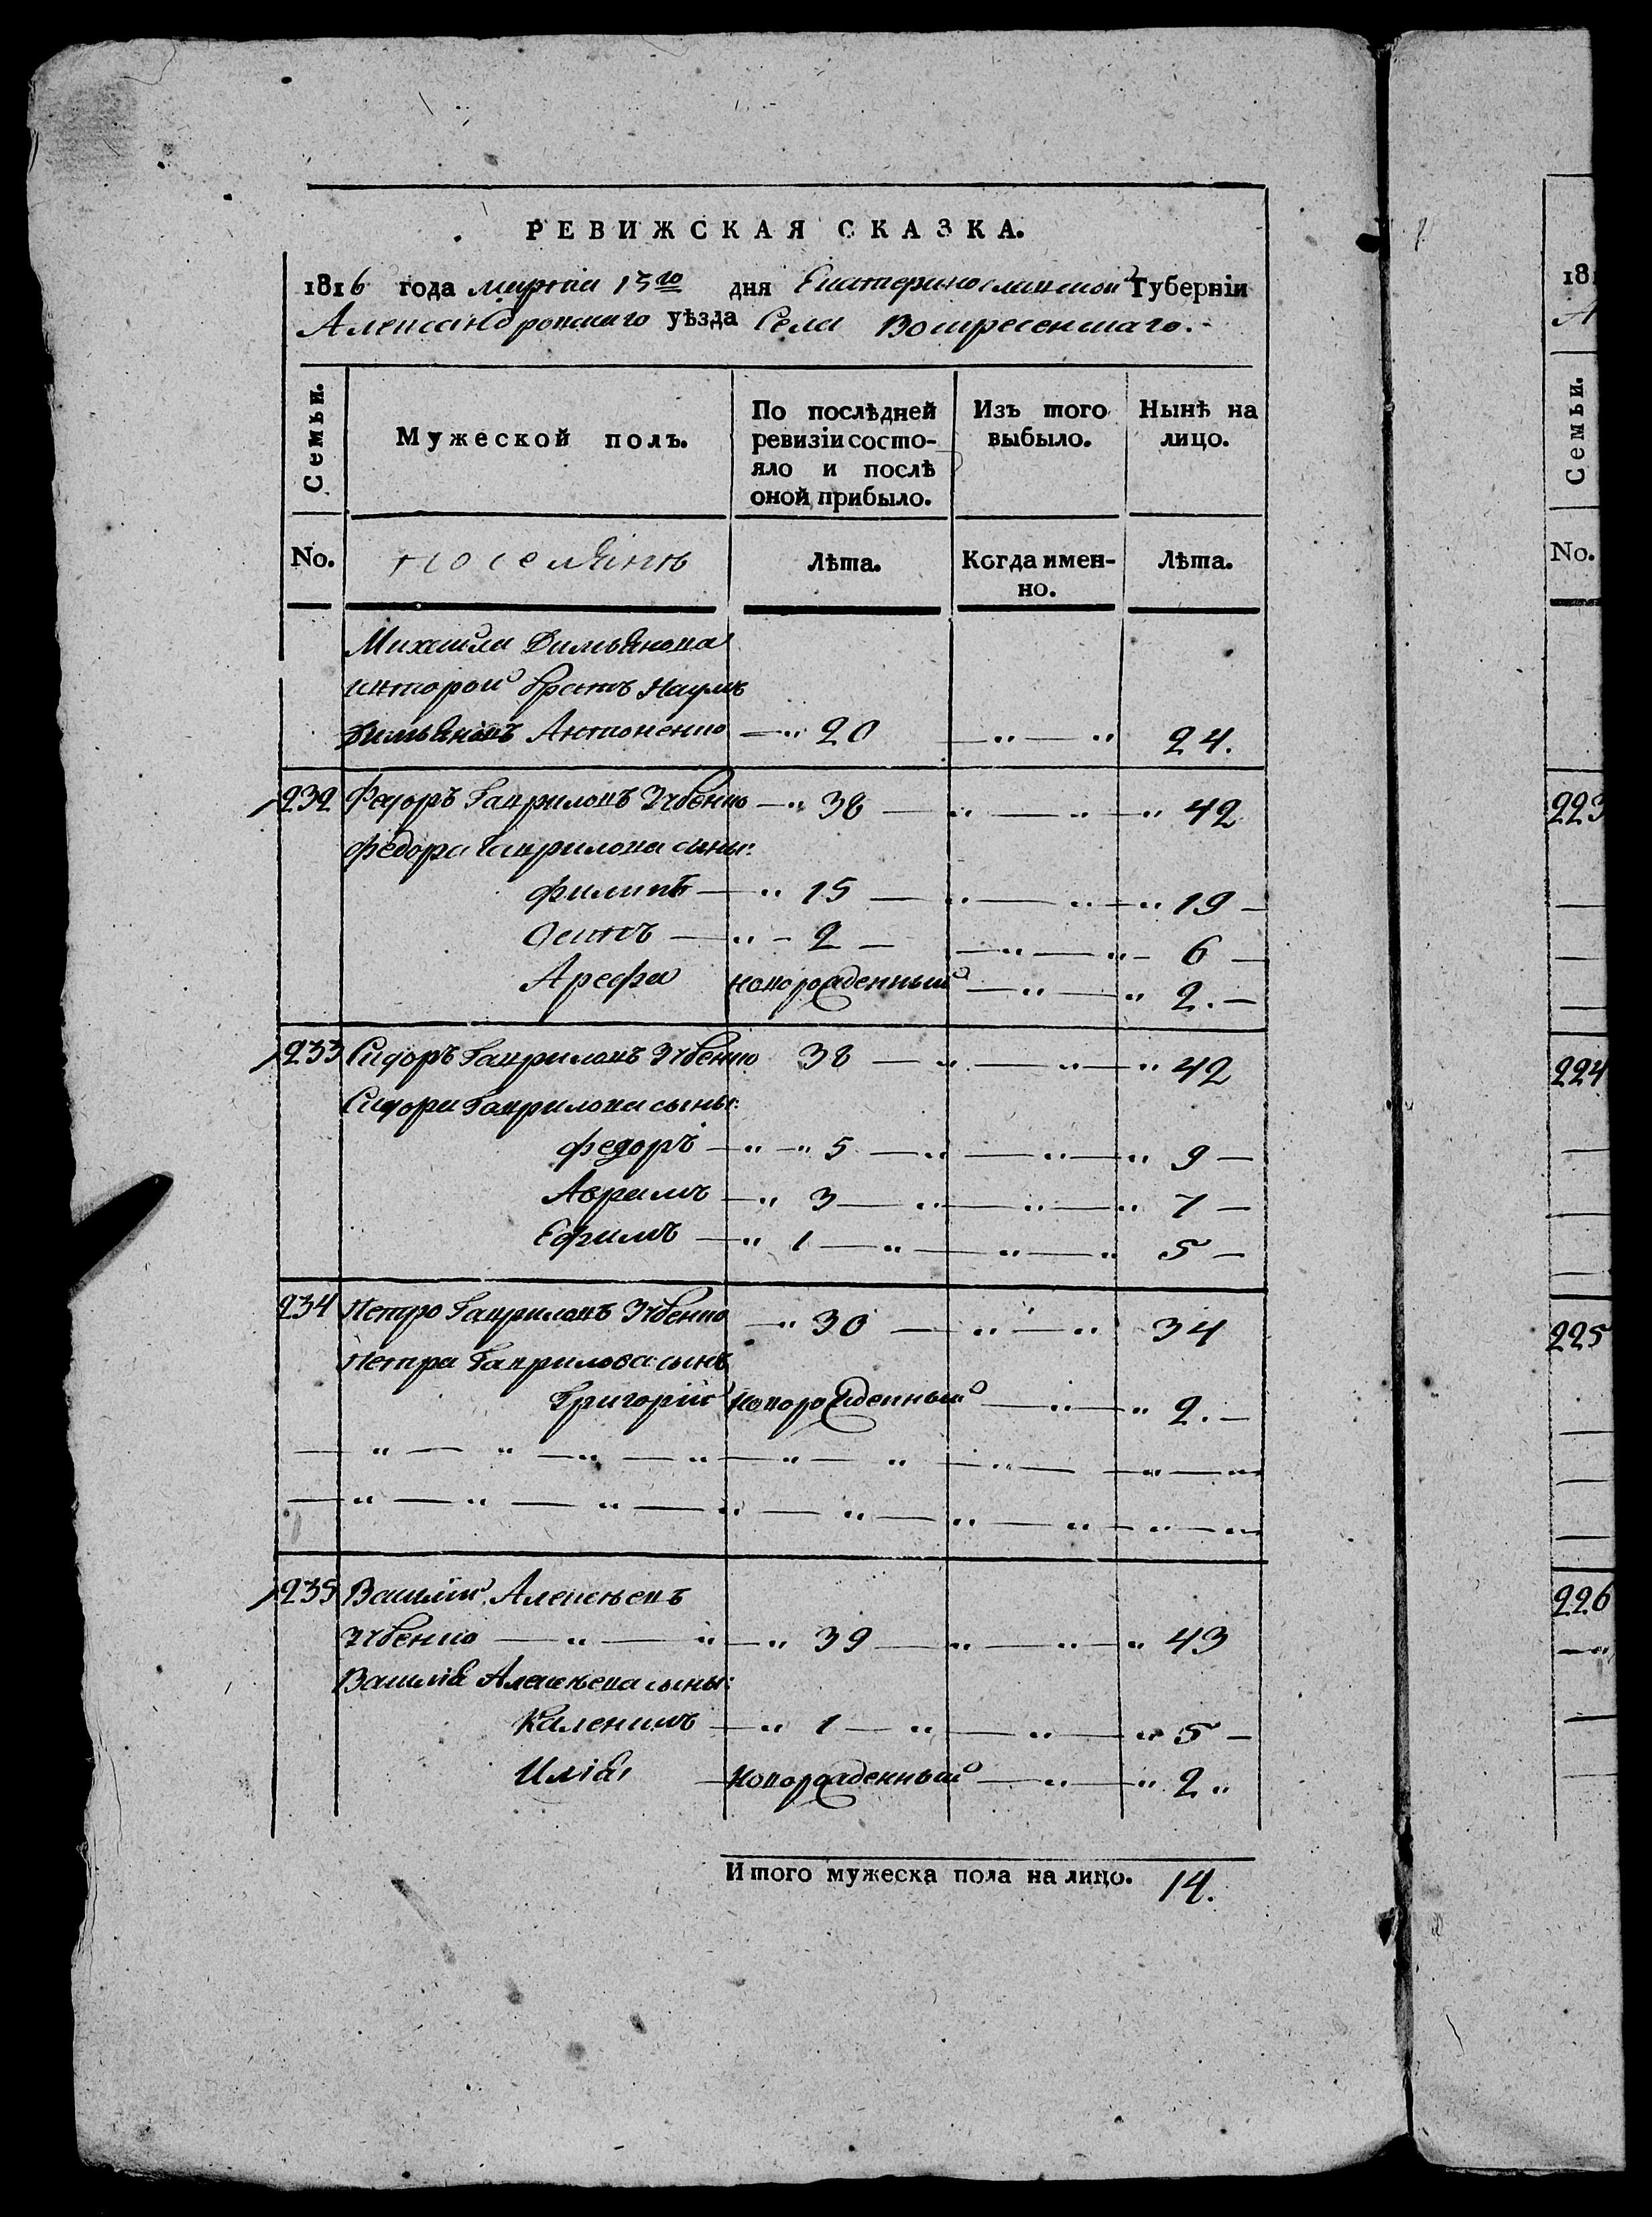 РЕВИЖСКАЯ СКАЗКА.
1816 года марта 15го дня Екатеринославской Губерніи
Александровскаго уѣзда Села Воскресенскаго.
Семьи. Мужеской полъ. По послѣдней Изъ того Нынѣ на
ревизіи состо- выбыло. лицо.
яло и послѣ
оной прибыло.
No. поселянъ Лѣта. Когда имен- Лѣта.
но.
Михайла
второй братъ Наумъ
Антоненко — 20 — 24.
232 Федоръ Гавриловъ Зубенко — 38 — 42
Федора Гаврилова сыны:
Филипъ — 15 — 19 —
Осипъ — 2 — 6 —
Арефа новорожденный — 2. —
233 Сидоръ Гавриловъ Зубенко 38 — 42
Сидора Гаврилова сыны:
Федоръ — 5 — 9 —
Аврамъ — 3 — 7 —
Ефимъ — 1 — 5 —
234 Петро Гавриловъ Зубенко — 30 — 34
Петра Гаврилова сынъ
Григорій новорожденный — 2. —
235 Василій Алексѣевъ
Зубенко — 39 — 43
Василія Алексѣева сыны:
Каленикъ — 1 — 5 —
Илія новорожденный — 2
Итого мужеска пола на лицо. 14.
181
Семьи.
No.
223
224
225
226